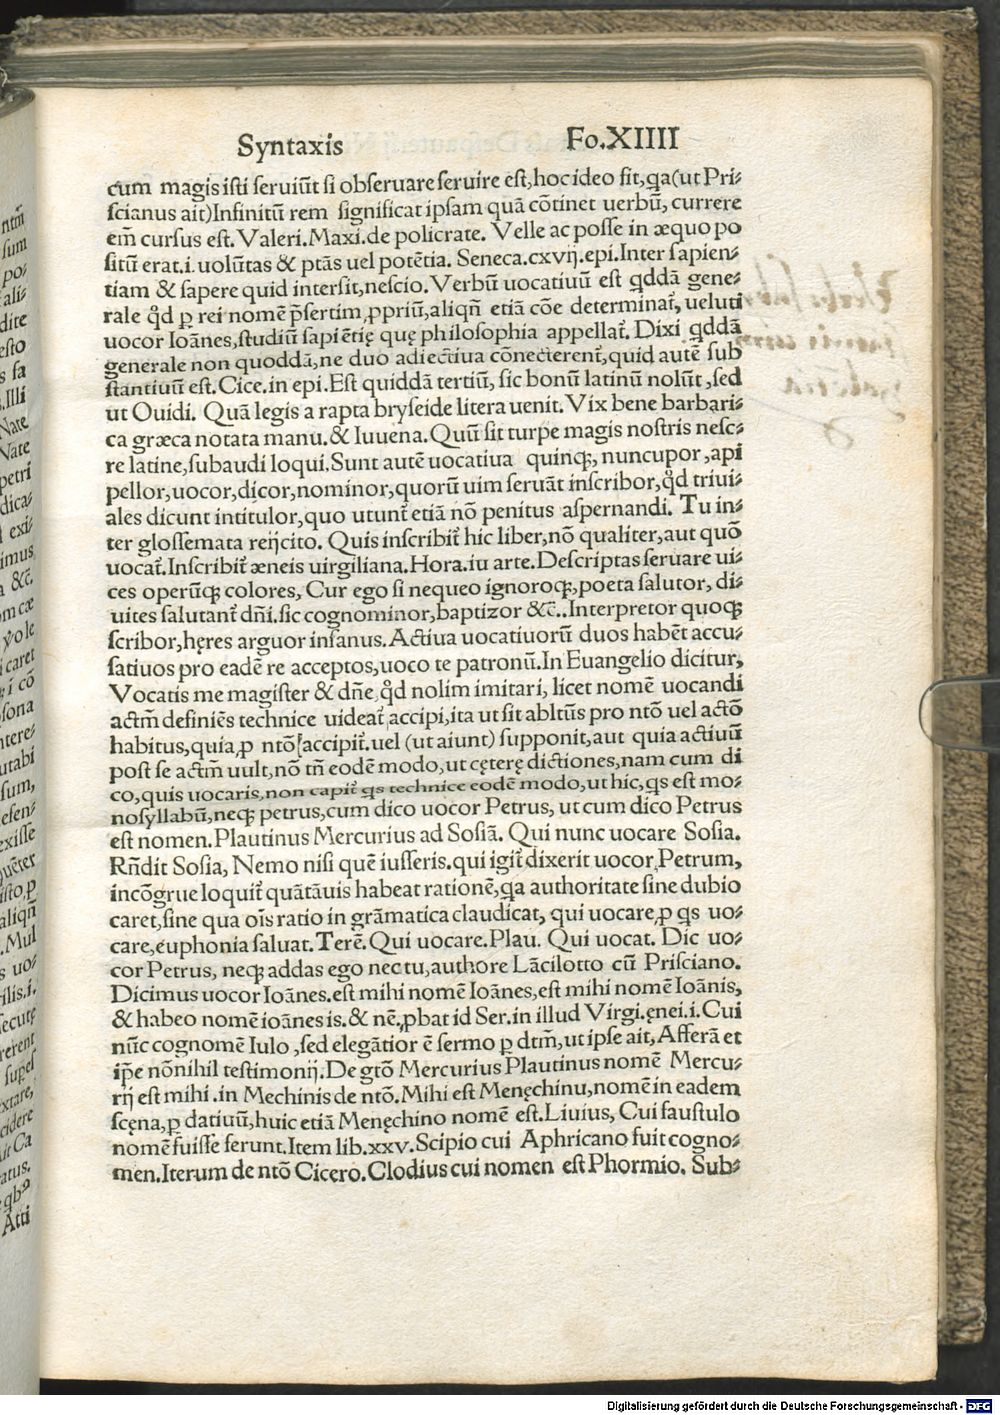 Syntaxis Fo.XIIII
cum magis isti seruiūt si obseruare seruire est, hoc ideo fit, ꝗa (ut Pri-
scianus ait) Infinitū rem significat ipsam quā cōtinet uerbū, currere
em̄ cursus est. Valeri. Maxi. de policrate. Velle ac posse in æquo po
sitū erat. i. uolūtas & ptās uel potētia. Seneca. cxvij. epi. Inter sapien-
tiam & sapere quid intersit, nescio. Verbū uocatiuū est ꝗddā gene-
rale ꝗd ꝑ rei nomē p̄sertim ꝓpriū, aliqn̄ etiā cōe determinat᷑, ueluti
uocor Ioānes, studiū sapiētię quę philosophia appellat᷑. Dixi ꝗddā
generale non quoddā, ne duo adiectiua cōnecterent᷑, quid autē sub
stantiuū est. Cice. in epi. Est quiddā tertiū, sic bonū latinū nolūt, sed
ut Ouidi. Quā legis a rapta bryseide litera uenit. Vix bene barbari-
ca græca notata manu. & Iuuena. Quū sit turpe magis nostris nesc-
re latine, subaudi loqui. Sunt autē uocatiua quinqꝫ, nuncupor, api
pellor, uocor, dicor, nominor, quorū uim seruāt inscribor, ꝗd triui-
ales dicunt intitulor, quo utunt᷑ etiā nō penitus aspernandi. Tu in-
ter glossemata reijcito. Quis inscribit᷑ hic liber, nō qualiter, aut quō
uocat᷑. Inscribit᷑ æneis uirgiliana. Hora. iu arte. Descriptas seruare ui-
ces operūqꝫ colores, Cur ego si nequeo ignoroqꝫ, poeta salutor, di-
uites salutant᷑ dn̄i. sic cognominor, baptizor &c̄.. Interpretor quoqꝫ
scribor, hęres arguor insanus. Actiua uocatiuorū duos habēt accu-
satiuos pro eadē re acceptos, uoco te patronū. In Euangelio dicitur,
Vocatis me magister & dn̄e, ꝗd nolim imitari, licet nomē uocandi
actm̄ definiēs technice uideat᷑ accipi, ita ut sit abltūs pro ntō uel actō
habitus, quia ꝓ ntō accipit᷑. uel (ut aiunt) supponit, aut quia actiuū
post se actm̄ uult, nō tn̄ eodē modo, ut cęterę dictiones, nam cum di
co, quis uocaris, non capit᷑ ꝗs technice eodē modo, ut hic, ꝗs est mo-
nosyllabū, neqꝫ petrus, cum dico uocor Petrus, ut cum dico Petrus
est nomen. Plautinus Mercurius ad Sosiā. Qui nunc uocare Sosia.
Rn̄dit Sosia, Nemo nisi quē iusseris. qui igit᷑ dixerit uocor Petrum,
incōgrue loquit᷑ quātāuis habeat rationē, ꝗa authoritate sine dubio
caret, sine qua oīs ratio in grāmatica claudicat, qui uocare, ꝓ ꝗs uo-
care, euphonia saluat. Terē. Qui uocare. Plau. Qui uocat. Dic uo-
cor Petrus, neqꝫ addas ego nec tu, authore Lācilotto cū Prisciano.
Dicimus uocor Ioānes. est mihi nomē Ioānes, est mihi nomē Ioānis,
& habeo nomē ioānes is. & nē, ꝓbat id Ser. in illud Virgi. ęnei. i. Cui
nūc cognomē Iulo, sed elegātior ē sermo ꝑ dtm̄, ut ipse ait, Afferā et
ip̄e nōnihil testimonij. De gtō Mercurius Plautinus nomē Mercu-
rij est mihi. in Mechinis de ntō. Mihi est Menęchinu, nomē in eadem
scęna, ꝑ datiuū, huic etiā Menęchino nomē est. Liuius, Cui faustulo
nomē fuisse ferunt. Item lib. xxv. Scipio cui Aphricano fuit cogno-
men. Iterum de ntō Cicero. Clodius cui nomen est Phormio. Sub-
Digitalisierung gefördert durch die Deutsche Forschungsgemeinschaft - DFG